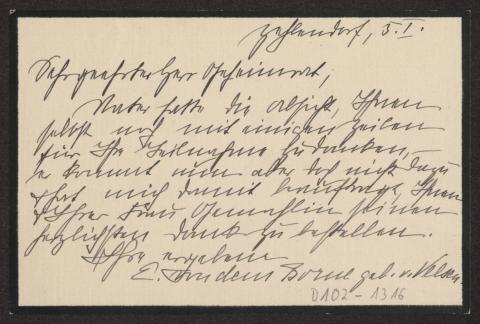 Zehlendorf, 5.I.
Sehr geehrter Herr Geheimrat,
Vater hatte die Absicht, Ihnen
selbst noch mit einigen Zeilen
für Ihre Teilnahme zu danken, –
er kommt nun aber doch nicht dazu
& hat mich damit beauftragt, Ihnen
& Ihrer Frau Gemahlin seinen
herzlichsten Dank zu bestellen.
Ihre ergebene
E. von dem Borne geb. v. Velsen
D102-1316